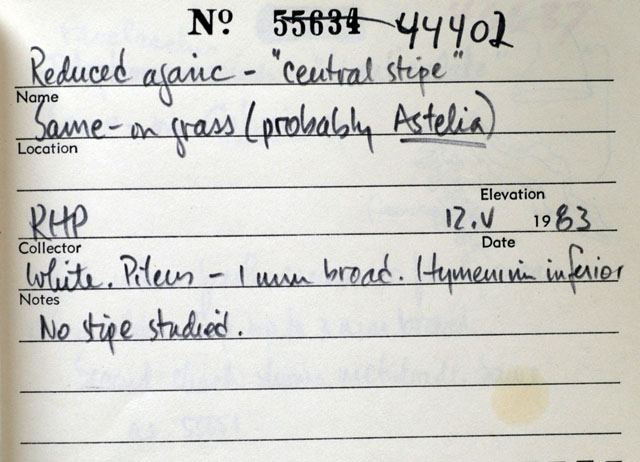 Nº 55634 44402
Reduced agaric - "central stipe"
Name
Same - on grass (probably Astelia)
Location
Elevation
RHP 12.V 1983
Collector Date
White. Pileus - 1 mm broad. Hymenium inferior
Notes
No stipe studied.